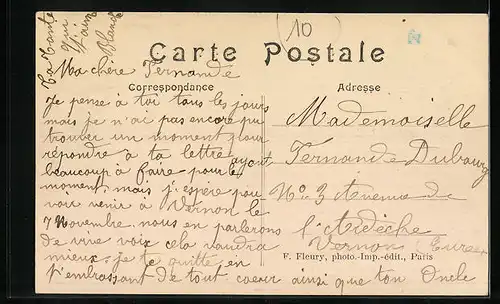 (10)
Carte Postale
Correspondance
Adresse
Ma chère Fernande
Je pense à toi tous les jours
mais je n'ai pas encore pu
trouver un moment pour
répondre à ta lettre ayant
beaucoup à faire pour le
moment, mais j'espère pou
voir venir à Vernon le
7 Novembre, nous en parlerons
de vive voix cela vaudra
mieux, je te quitte en
t'embrassant de tout coeur ainsi que ton Oncle
Ta Tante
qui
t'aime
Mademoiselle
Fernande Dubourg
No 3 Avenue de
l'Ardèche
Vernon (Eure)
F. Fleury, photo.-Imp.-édit., Paris